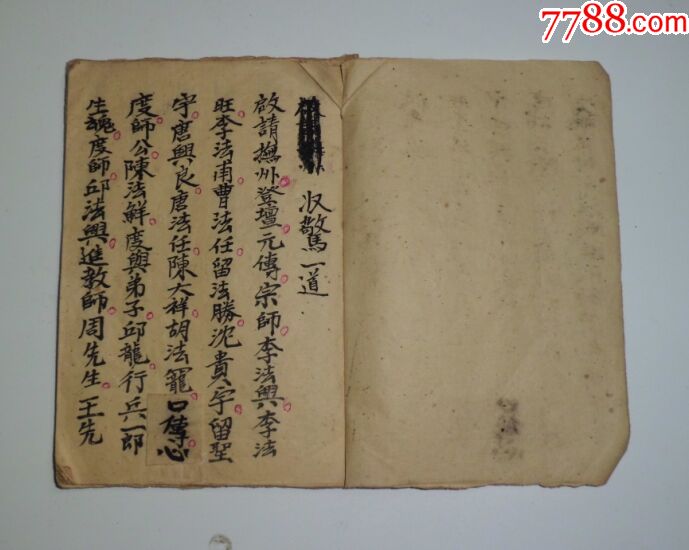 7788.com
收驚一道
啟請撫州登壇元傳宗師李法興李法
旺李法甫曹法任留法勝沈貴宇留聖
宇唐興良唐法任陳大祥胡法寵口傳心
度師公陳法鮮度與弟子邱龍行兵一郎
生魂度師邱法興進教師周先生王先